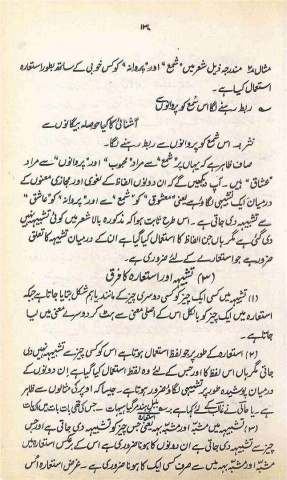 ۱۳۶
مثال ۲ مندرجہ ذیل شعر میں "شمع" اور "پروانہ" کو کس خوبی کے ساتھ بطور استعارہ
استعمال کیا ہے۔
ربط رہنے لگا اس شمع کو پروانوں سے
آشنائی کا کیا حوصلہ بیگانوں سے
تشریح۔ اس شمع کو پروانوں سے ربط رہنے لگا۔
صاف ظاہر ہے کہ یہاں پر "شمع" سے مراد "محبوب" اور "پروانوں" سے مراد
"عشاق" ہیں۔ آپ دیکھیں گے کہ ان دونوں الفاظ کے لغوی اور مجازی معنوں کے
درمیان ایک تشبیہی لگاؤ ہے یعنی "معشوق" کو "شمع" سے اور "پروانہ" کو "عاشق"
سے تشبیہ دی جاتی ہے۔ اس طرح ثابت ہوا کہ مذکورہ بالا شعر میں کوئی تشبیہ نہیں
دی گئی ہے مگر ہاں جن الفاظ کا استعمال کیا گیا ہے ان کے درمیان تشبیہہ کا تعلق
ضرور ہے جو استعارے کے لئے ضروری ہے۔
(۳) تشبیہہ اور استعارہ کا فرق
(۱) تشبیہہ میں کسی ایک چیز کو کسی دوسری چیز کے مانند یا ہم شکل بتایا جاتا ہے جبکہ
استعارہ میں ایک چیز کو بالکل اس کے اصلی معنی سے ہٹ کر دوسرے معنی میں لیا
جاتا ہے۔
(۲) استعارہ کے طور پر جو لفظ استعمال ہوتا ہے اس کو کسی چیز سے تشبیہہ نہیں دی
جاتی مگر ہاں اس لفظ کا اور جس چیز کے لئے وہ لفظ استعمال کیا گیا ہے ان دونوں کے
درمیان پوشیدہ طور پر تشبیہی لگاؤ ضرور ہوتا ہے۔ جیسا کہ اوپر کی مثالوں سے ظاہر
ہے۔ یا حالی نے غالب کے لئے کہا ہے: بلبل ہند مر گیا ہیہات - جس کی تھی بات بات میں اک بات
(۳) تشبیہہ میں مشبہ اور مشبہ بہہ یعنی جس چیز کو تشبیہہ دی جاتی ہے اور جس
چیز سے تشبیہہ دی جاتی ہے ان دونوں کا ہونا ضروری ہے اس کے برعکس استعارہ میں
مشبہ اور مشبہ بہہ میں سے صرف کسی ایک کا ہونا ضروری ہے۔ غرض استعارہ اُس